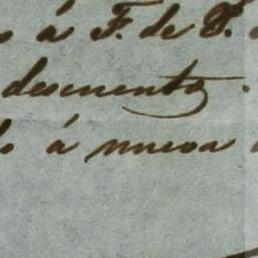 á F. de T.
descuento.
á nueva